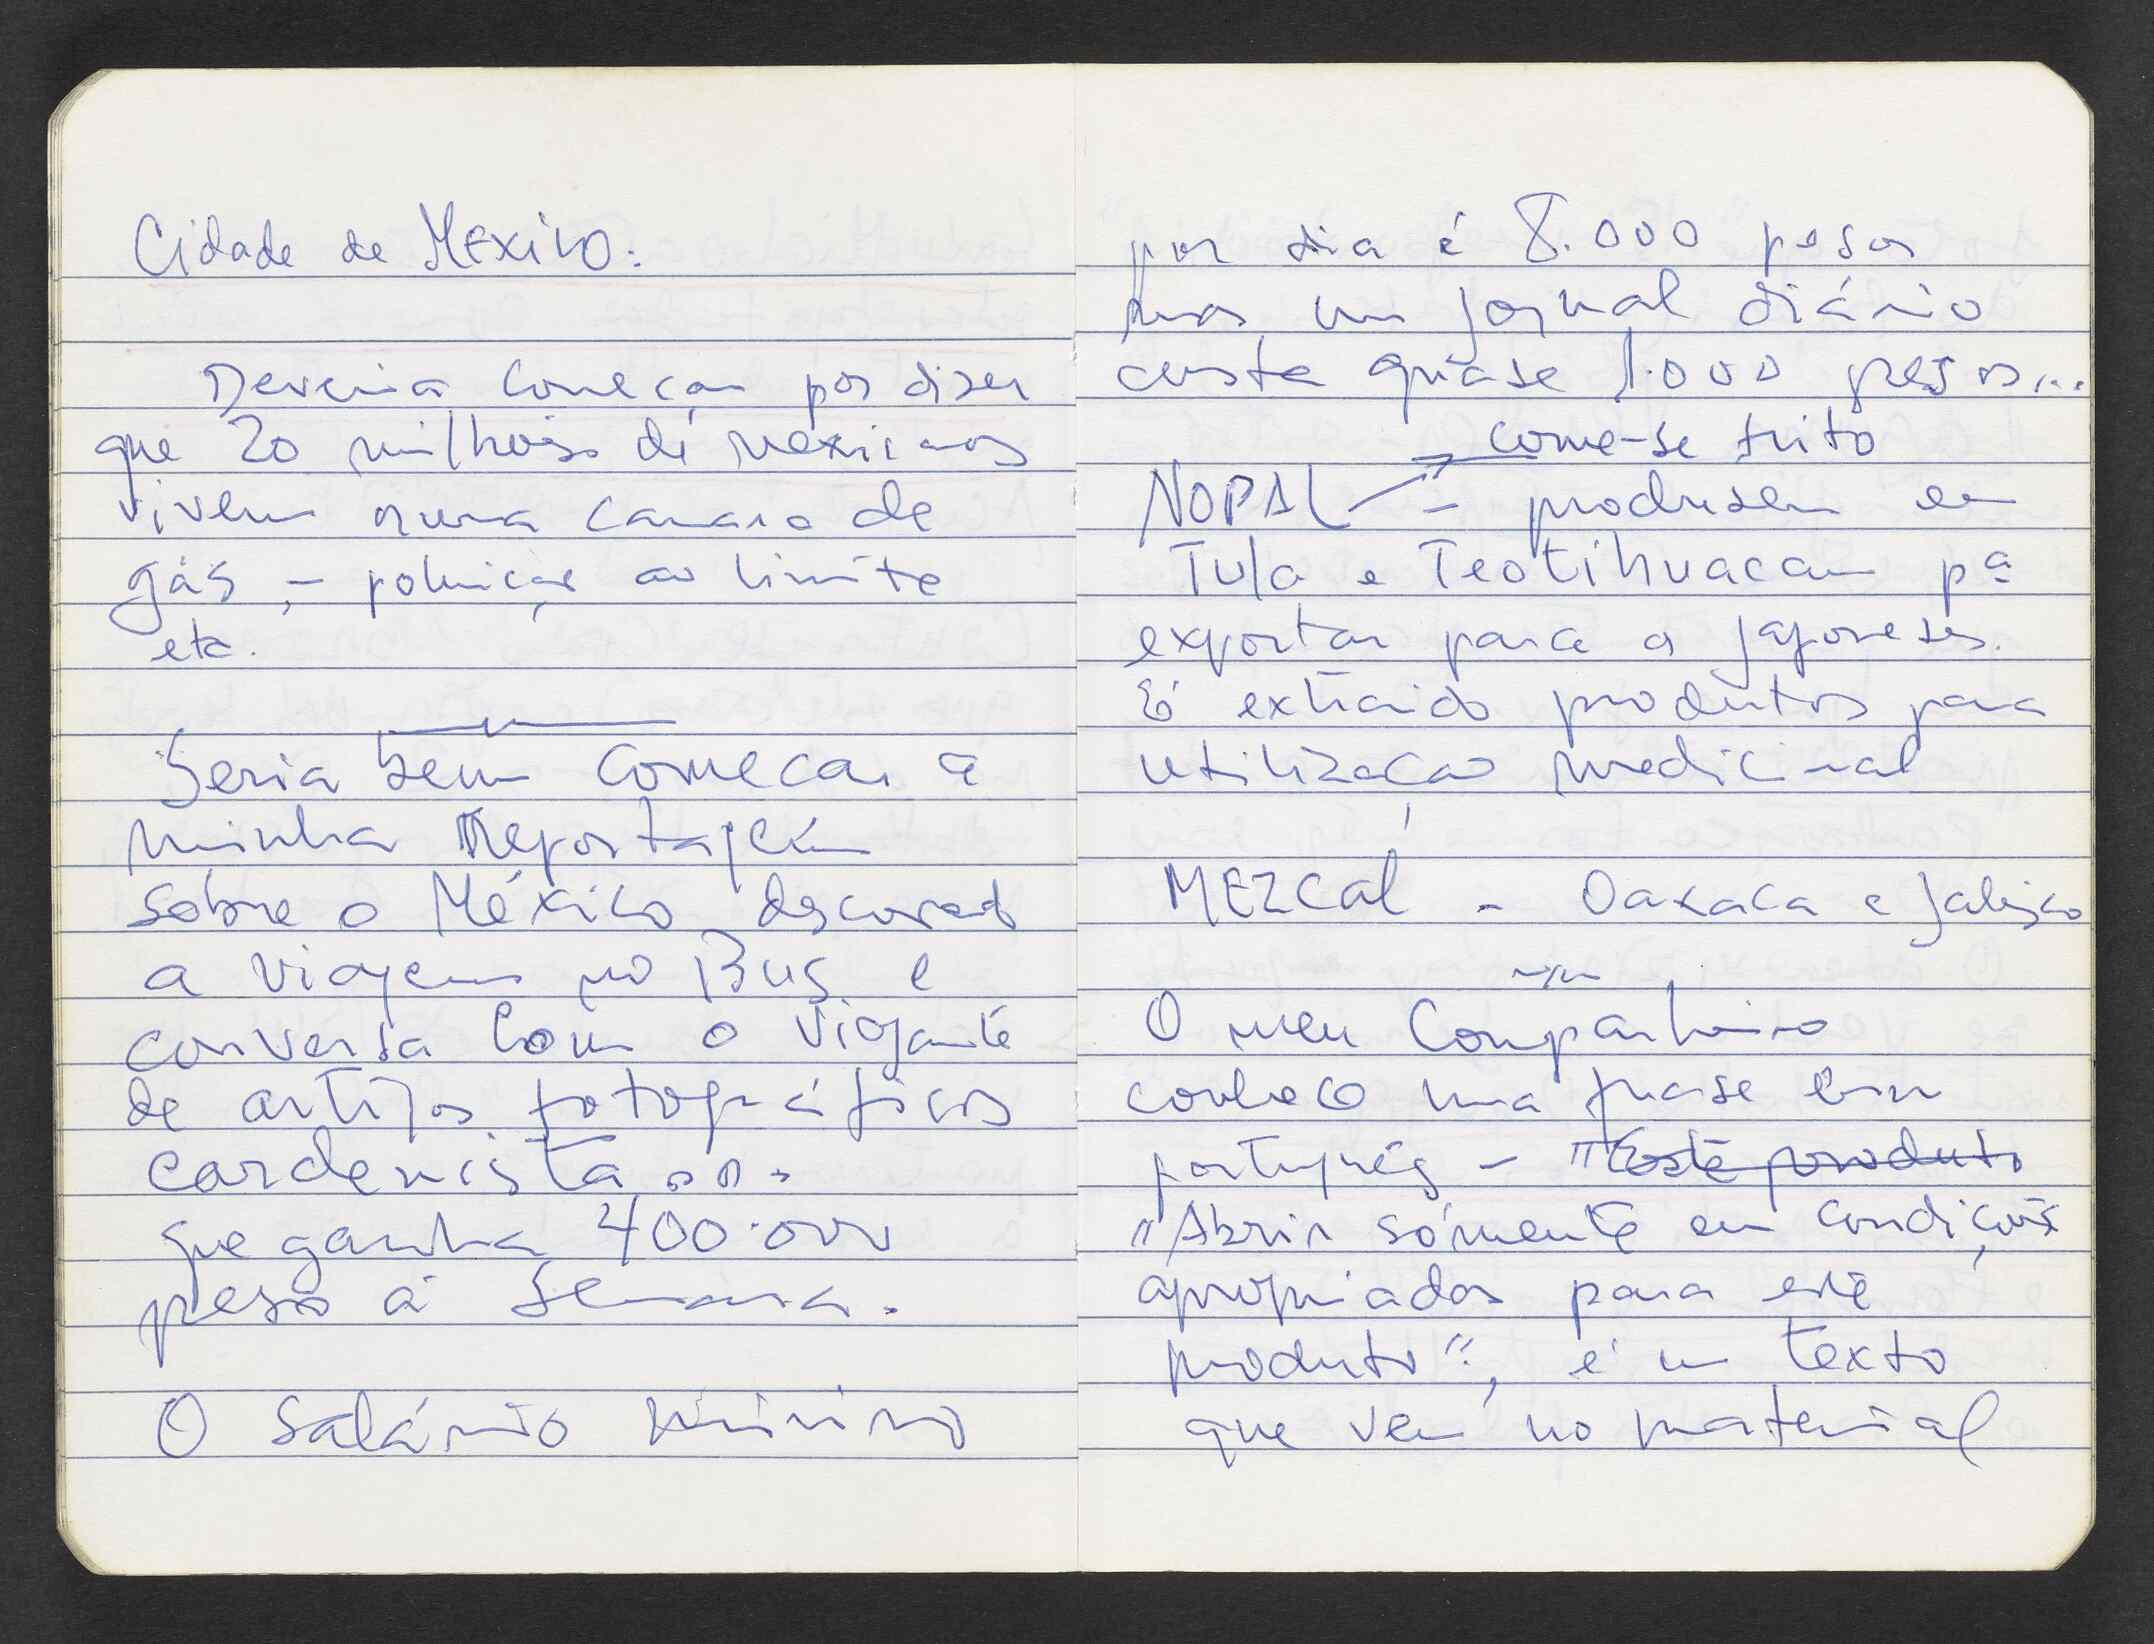 Cidade de México:
Deveria começar por dizer
que 20 milhões de mexicanos
vivem numa camara de
gás, - poluição ao limite
etc.
Seria bem começar a
minha Reportagem
sobre o México
a viagem no Bus e
conversa com o viajante
de artigos fotográficos
cardenista...
que ganha 400.000
pesos à semana.
O salário mínimo
por dia é 8.000 pesos
mas um jornal diário
custa quase 1.000 pesos...
come-se frito
NOPAL - produsem em
Tula e Teotihuacan pª
exportar para os japoneses.
É extraido produtos para
utilização medicinal
MEZCAL - Oaxaca e Jalisco
O meu Companheiro
conhece uma frase em
português - "Este produto
"Abrir sómente em condições
apropriadas para este
produto", é um texto
que vem no material